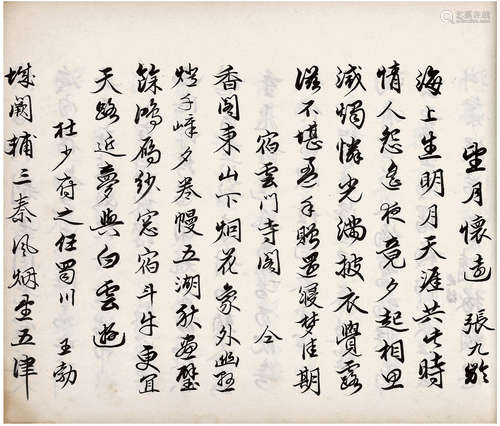 望月懷遠 張九齡
海上生明月天涯共此時
情人怨遙夜竟夕起相思
滅燭憐光滿披衣覺露
滋不堪盈手贈還寢夢佳期
宿雲門寺閣
香閣東山下烟花象外幽懸
燈千嶂夕卷幔五湖秋畫壁
餘鴻雁紗窗宿斗牛更宜
天路近夢與白雲遊
杜少府之任蜀川 王勃
城闕輔三秦風烟望五津